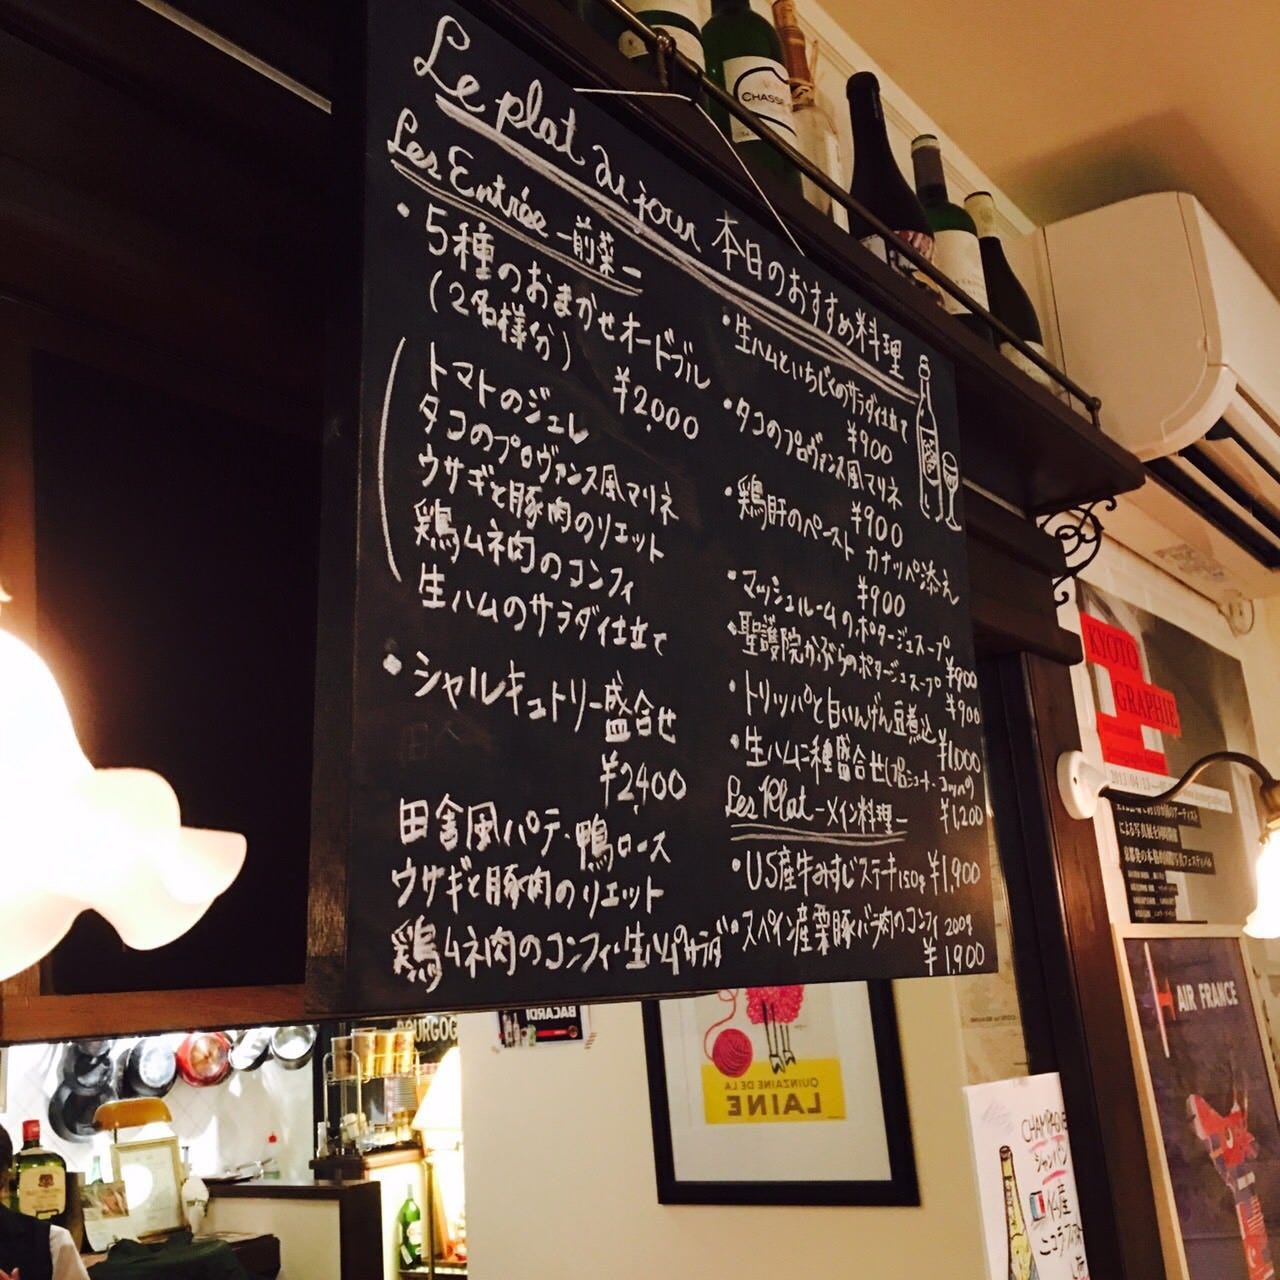 Le plat au jour 本日のおすすめ料理
Les Entrée -前菜-
・5種のおまかせオードブル
(2名様分) ¥2,000
トマトのジュレ
タコのプロヴァンス風マリネ
ウサギと豚肉のリエット
鶏ムネ肉のコンフィ
生ハムのサラダ仕立て
・シャルキュトリー盛合せ
¥2,400
田舎風パテ・鴨ロース
ウサギと豚肉のリエット
鶏ムネ肉のコンフィ・生ハムのサラダ
・生ハムといちじくのサラダ仕立て
¥900
・タコのプロヴァンス風マリネ
¥900
・鶏肝のペースト カナッペ添え
¥900
・マッシュルームのポタージュスープ
¥900
・聖護院かぶらのポタージュスープ
¥900
・トリッパと白いんげん豆煮込
¥1,000
・生ハム二種盛合せ(プロシュート・コッパ)
¥1,200
Les Plat -メイン料理-
・US産牛みすじステーキ150g ¥1,900
・スペイン産栗豚バラ肉のコンフィ 200g
¥1,900
CHASSE
KYOTO
GRAPHIE
による写真展を同時開催
AIR FRANCE
BACARDI
BOURGOG
QUINZAINE DE LA
LAINE
CHAMPAGNE
シャンパン
ニコラ